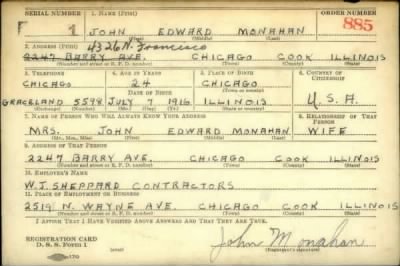 SERIAL NUMBER 1. NAME (Print) ORDER NUMBER
1 JOHN EDWARD MONAHAN 885
(First) (Middle) (Last)
4326 N. Francisco
2. ADDRESS (Print)
2247 BARRY AVE. CHICAGO COOK ILLINOIS
(Number and street or R. F. D. number) (Town) (County) (State)
3. TELEPHONE 4. AGE IN YEARS 5. PLACE OF BIRTH 6. COUNTRY OF CITIZENSHIP
CHICAGO 24 CHICAGO
DATE OF BIRTH (Town or county)
GRACELAND 5598 JULY 7 1916 ILLINOIS U.S.A.
(Exchange) (Number) (Mo.) (Day) (Yr.) (State or country)
7. NAME OF PERSON WHO WILL ALWAYS KNOW YOUR ADDRESS 8. RELATIONSHIP OF THAT PERSON
MRS. JOHN EDWARD MONAHAN WIFE
(Mr., Mrs., Miss) (First) (Middle) (Last)
9. ADDRESS OF THAT PERSON
2247 BARRY AVE. CHICAGO COOK ILLINOIS
(Number and street or R. F. D. number) (Town) (County) (State)
10. EMPLOYER'S NAME
W.J. SHEPPARD CONTRACTORS
11. PLACE OF EMPLOYMENT OR BUSINESS
2519 N. WAYNE AVE. CHICAGO COOK ILLINOIS
(Number and street or R. F. D. number) (Town) (County) (State)
I AFFIRM THAT I HAVE VERIFIED ABOVE ANSWERS AND THAT THEY ARE TRUE.
REGISTRATION CARD
D. S. S. Form 1
John Monahan